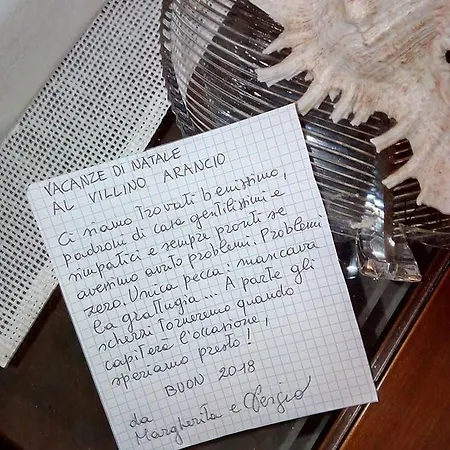 VACANZE DI NATALE
AL VILLINO ARANCIO
Ci siamo trovati benissimo,
padroni di casa gentilissimi e
simpatici e sempre pronti se
avessimo avuto problemi. Problemi
zero. Unica pecca: mancava
la grattugia... A parte gli
scherzi torneremo quando
capiterà l'occasione,
speriamo presto!
BUON 2018
da
Margherita e Sergio